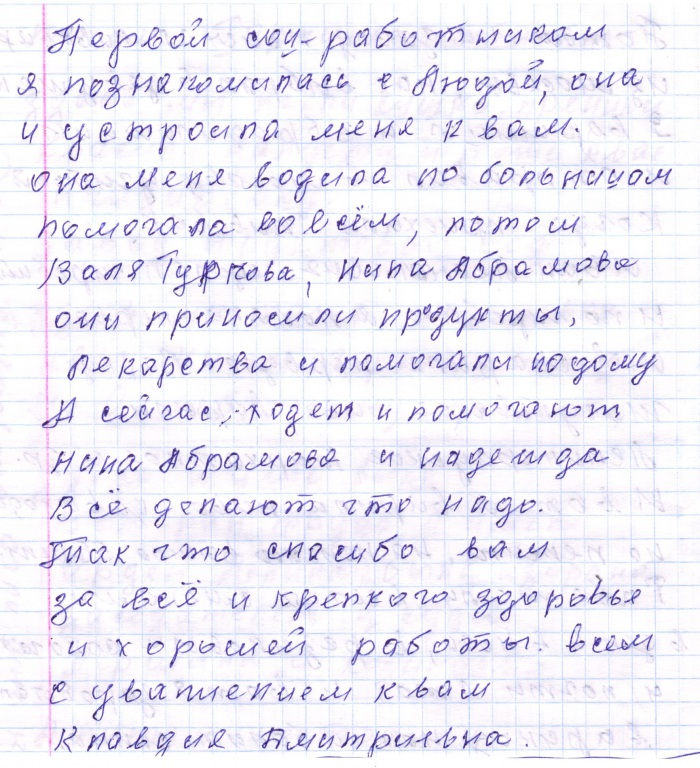 Первой соц-работником
я познакомилась с Людой, она
и устроила меня к вам.
она меня водила по больницам
помогала во всём, потом
Валя Туркова, Нина Абрамова
они приносили продукты,
лекарства и помогали по дому
А сейчас, ходет и помогают
Нина Абрамова и надежда
Всё делают что надо.
Так что спасибо вам
за всё и крепкого здоровье
и хорошей работы. всем
с уважением к вам
Клавдия Дмитриевна.